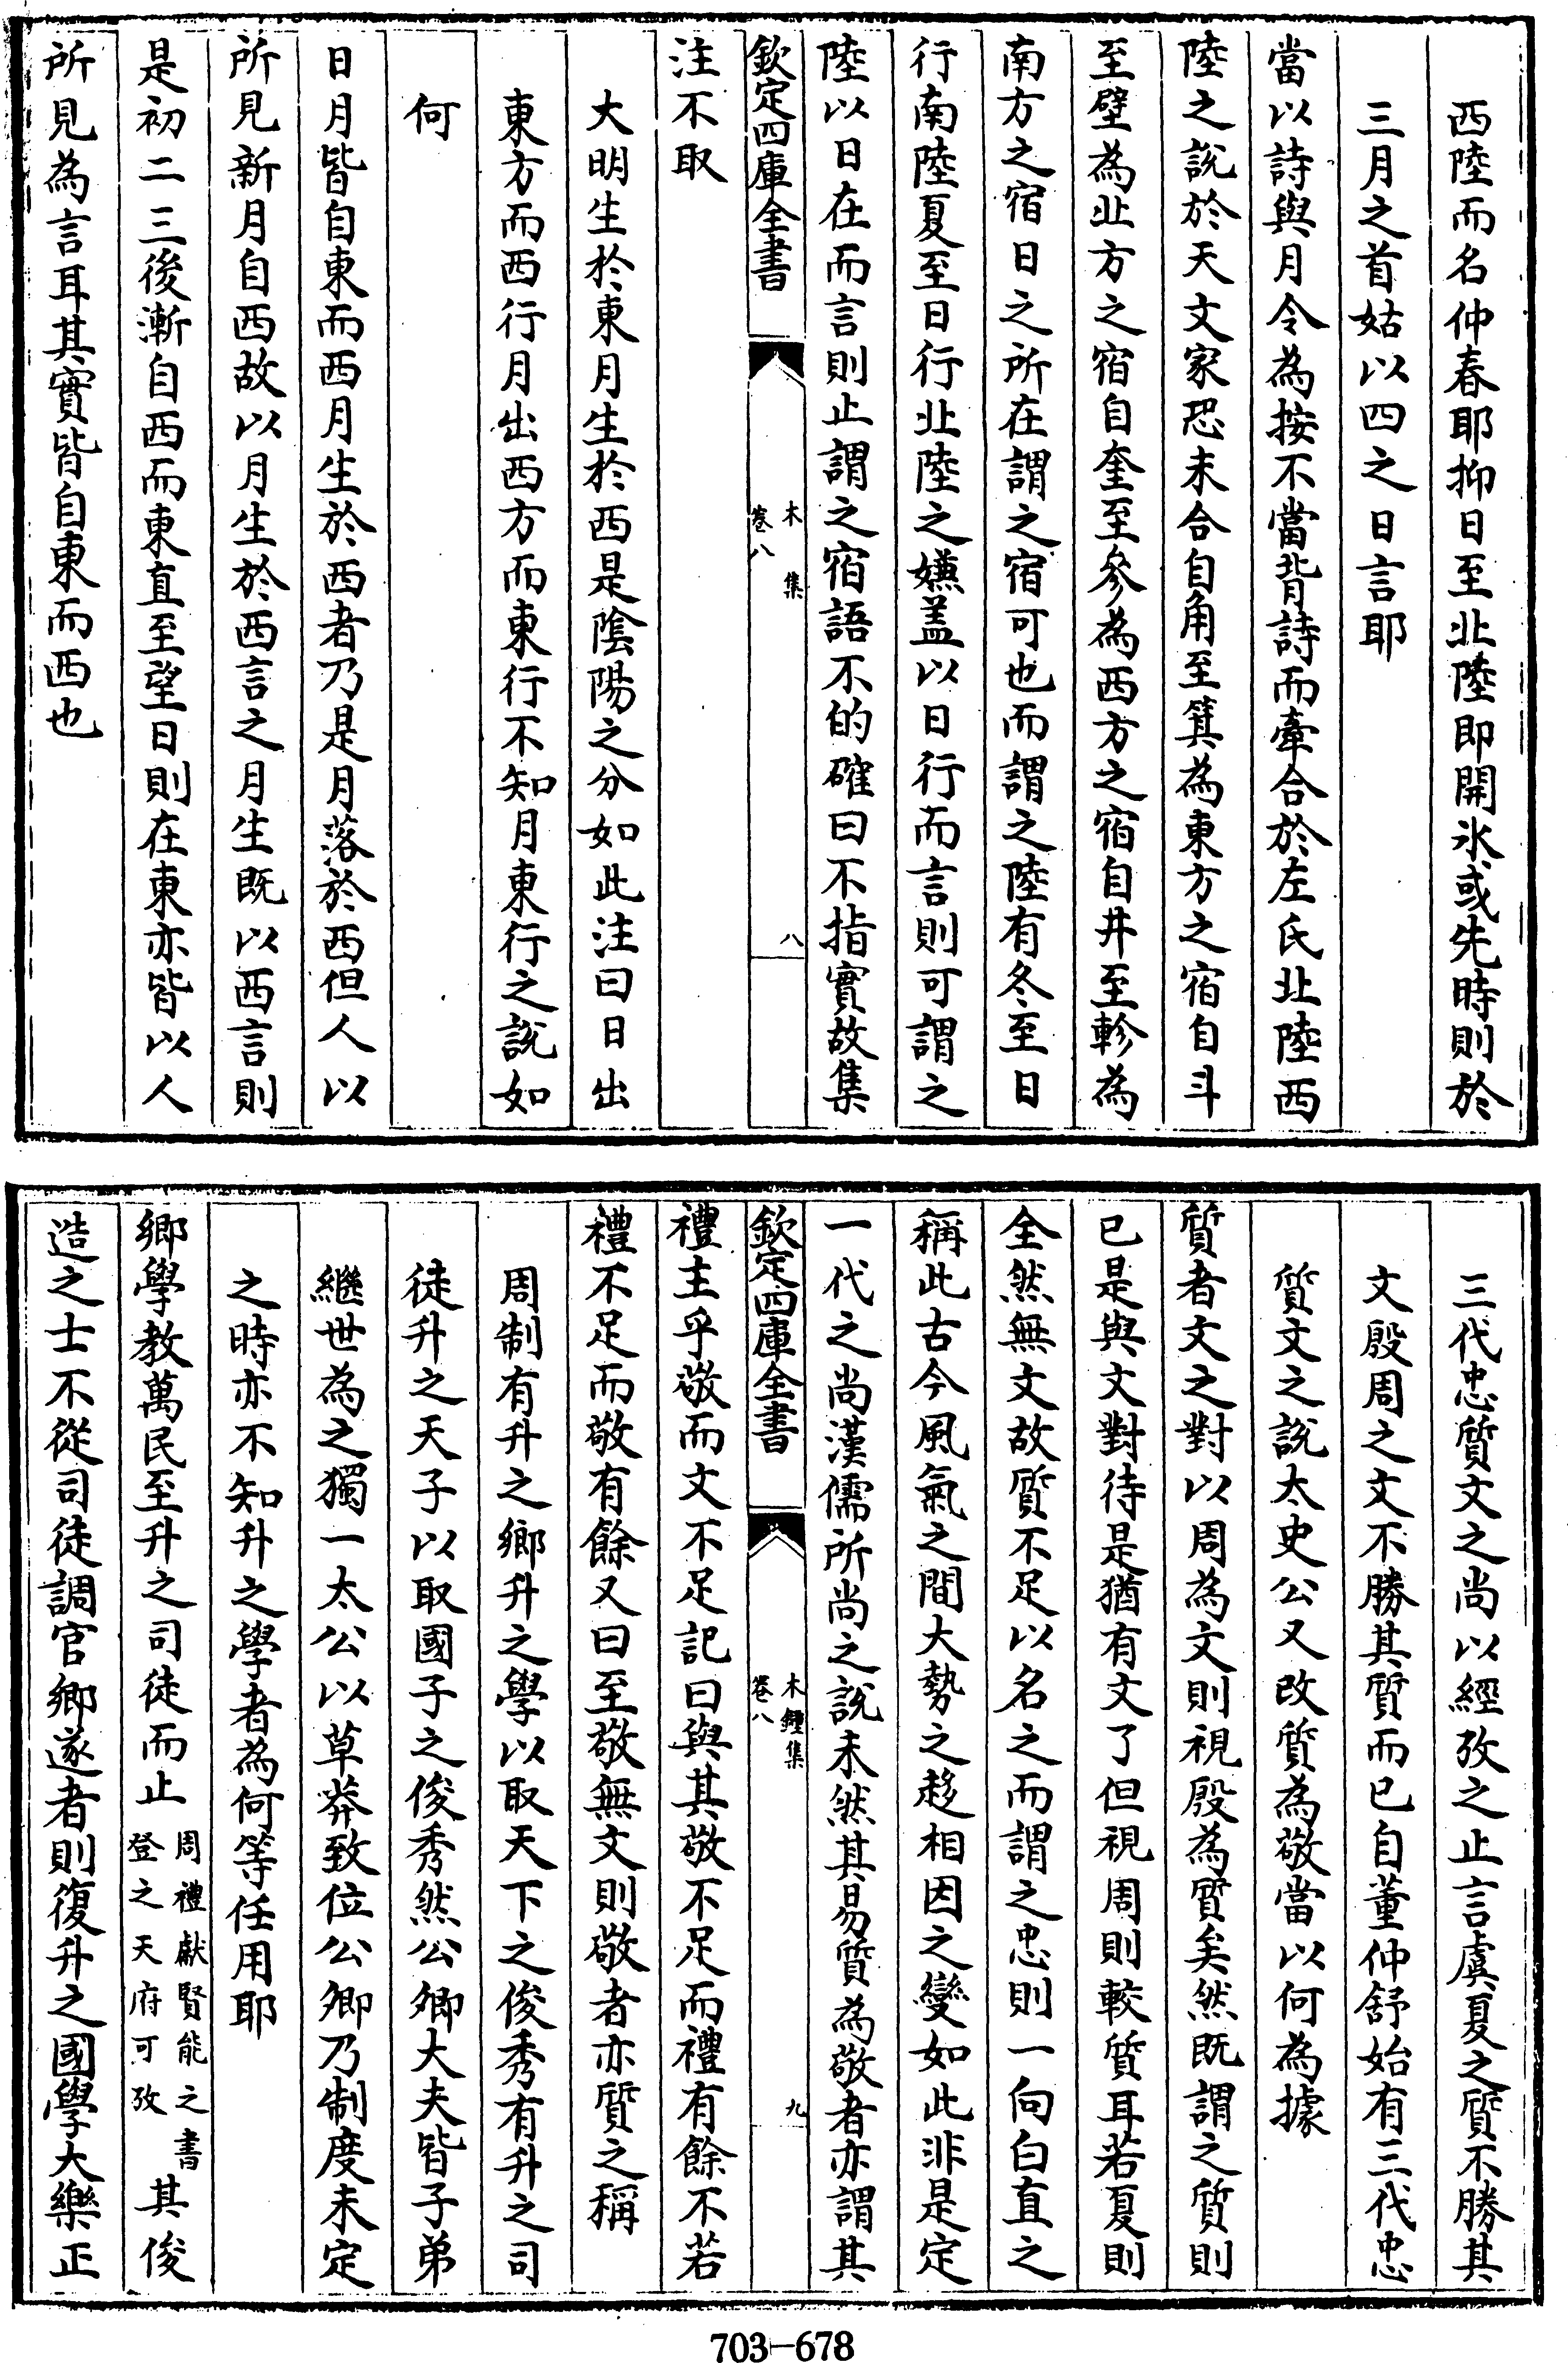 西陸而名仲春耶抑日至北陸即開氷或先時則於
三月之首姑以四之日言耶
當以詩與月令為按不當背詩而牽合於左氏北陸西
陸之說於天文家恐未合自角至箕為東方之宿自斗
至壁為北方之宿自奎至參為西方之宿自井至軫為
南方之宿日之所在謂之宿可也而謂之陸有冬至日
行南陸夏至日行北陸之嫌盖以日行而言則可謂之
陸以日在而言則止謂之宿語不的確曰不指實故集
欽定四庫全書
木 集
卷八
八
注不取
大明生於東月生於西是陰陽之分如此注曰日出
東方而西行月出西方而東行不知月東行之說如
何
日月皆自東而西月生於西者乃是月落於西但人以
所見新月自西故以月生於西言之月生既以西言則
是初二三後漸自西而東直至望日則在東亦皆以人
所見為言耳其實皆自東而西也
三代忠質文之尚以經攷之止言虞夏之質不勝其
文殷周之文不勝其質而已自董仲舒始有三代忠
質文之說太史公又改質為敬當以何為據
質者文之對以周為文則視殷為質矣然既謂之質則
已是與文對待是猶有文了但視周則較質耳若夏則
全然無文故質不足以名之而謂之忠則一向白直之
稱此古今風氣之間大勢之趍相因之變如此非是定
一代之尚漢儒所尚之說未然其易質為敬者亦謂其
欽定四庫全書
木鍾集
卷八
九
禮主乎敬而文不足記曰與其敬不足而禮有餘不若
禮不足而敬有餘又曰至敬無文則敬者亦質之稱
周制有升之鄉升之學以取天下之俊秀有升之司
徒升之天子以取國子之俊秀然公卿大夫皆子弟
繼世為之獨一太公以草莽致位公卿乃制度未定
之時亦不知升之學者為何等任用耶
鄉學教萬民至升之司徒而止周禮獻賢能之書登之天府可攷其俊
造之士不從司徒調官鄉遂者則復升之國學大樂正
703-678